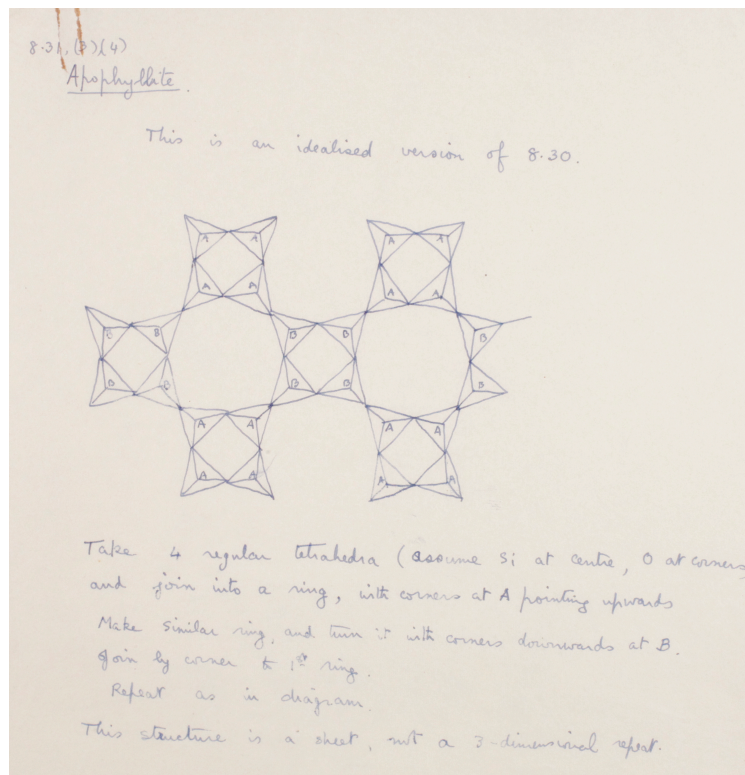 8.31, (3)(4)
Apophyllite.
This is an idealised version of 8.30.
A A A A
A A A A
B B B B B
B B B B B
A A A A
A A A A
Take 4 regular tetrahedra (assume Si at centre, O at corners
and join into a ring, with corners at A pointing upwards
Make similar ring, and turn it with corners downwards at B.
Join by corner to 1st ring.
Repeat as in diagram.
This structure is a sheet, not a 3-dimensional repeat.